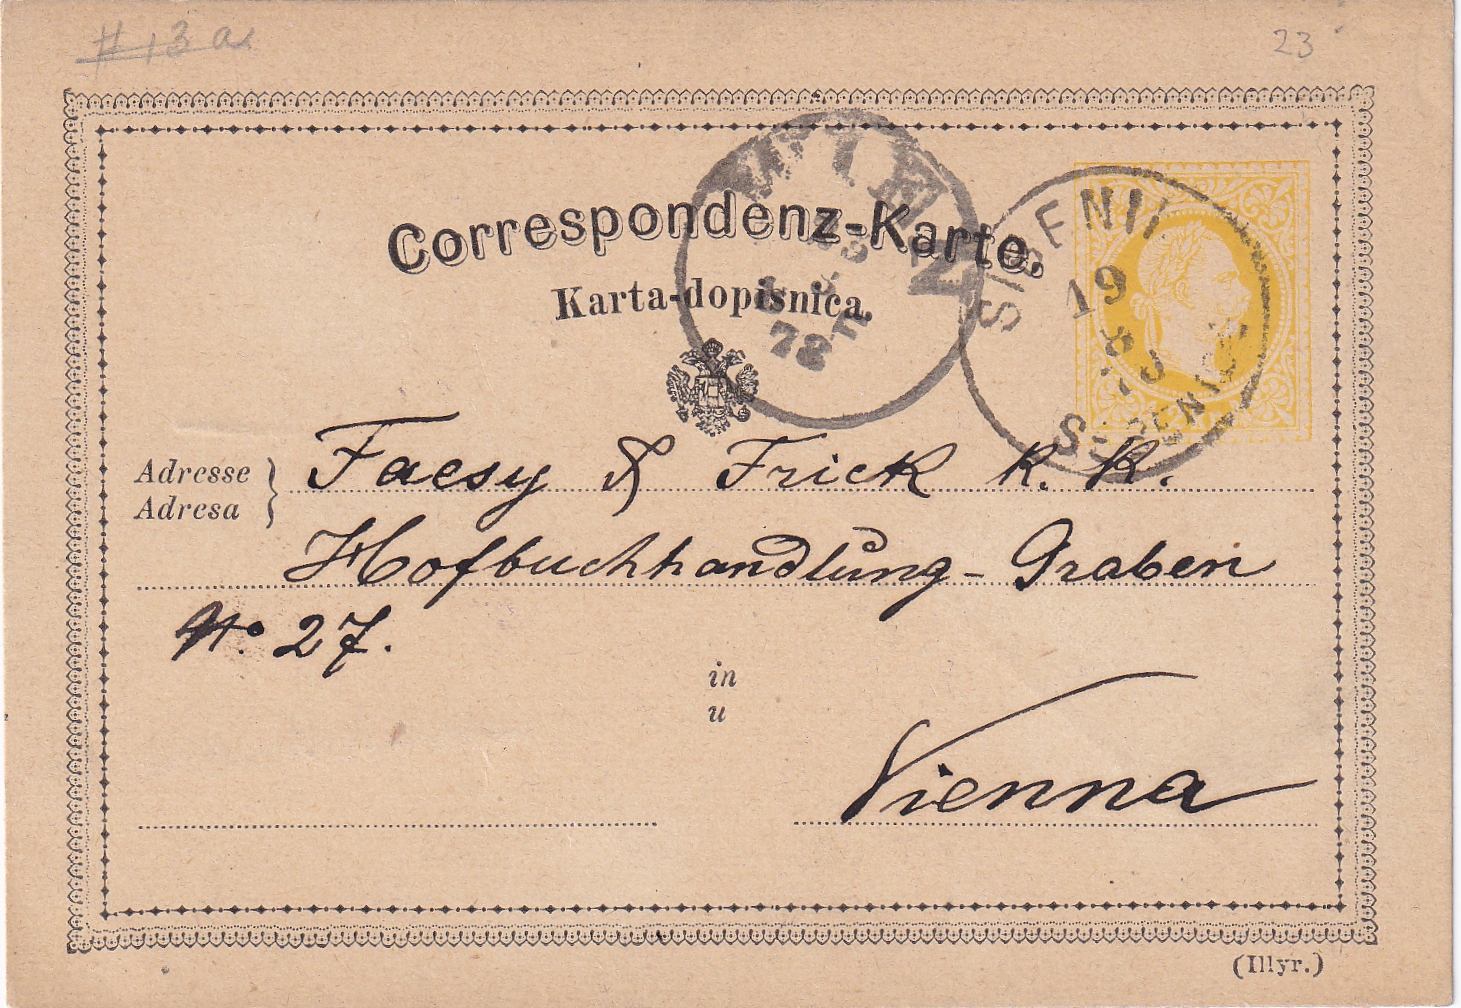 # 13a
23
WIEN
Correspondenz-Karte.
Karta-dopisnica.
19
8
Adresse
Adresa
Faesy & Frick k. k.
Hofbuchhandlung - Graben
No. 27.
in
u
Vienna
(Illyr.)